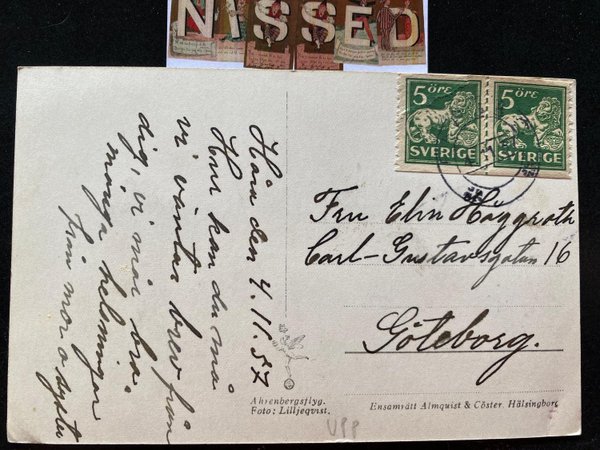 NISSED
5 ÖRE
SVERIGE
5 ÖRE
SVERIGE
den 4.11.37
Hur kan du må
vi väntar brev från
dig, vi mår bra
många helsningar
från mor o
Fru Elin Häggroth
Carl-Gustavsgatan 16
Göteborg.
Ahrenbergsflyg.
Foto: Lilljeqvist.
Ensamrätt Almquist & Cöster. Hälsingborg
UPP